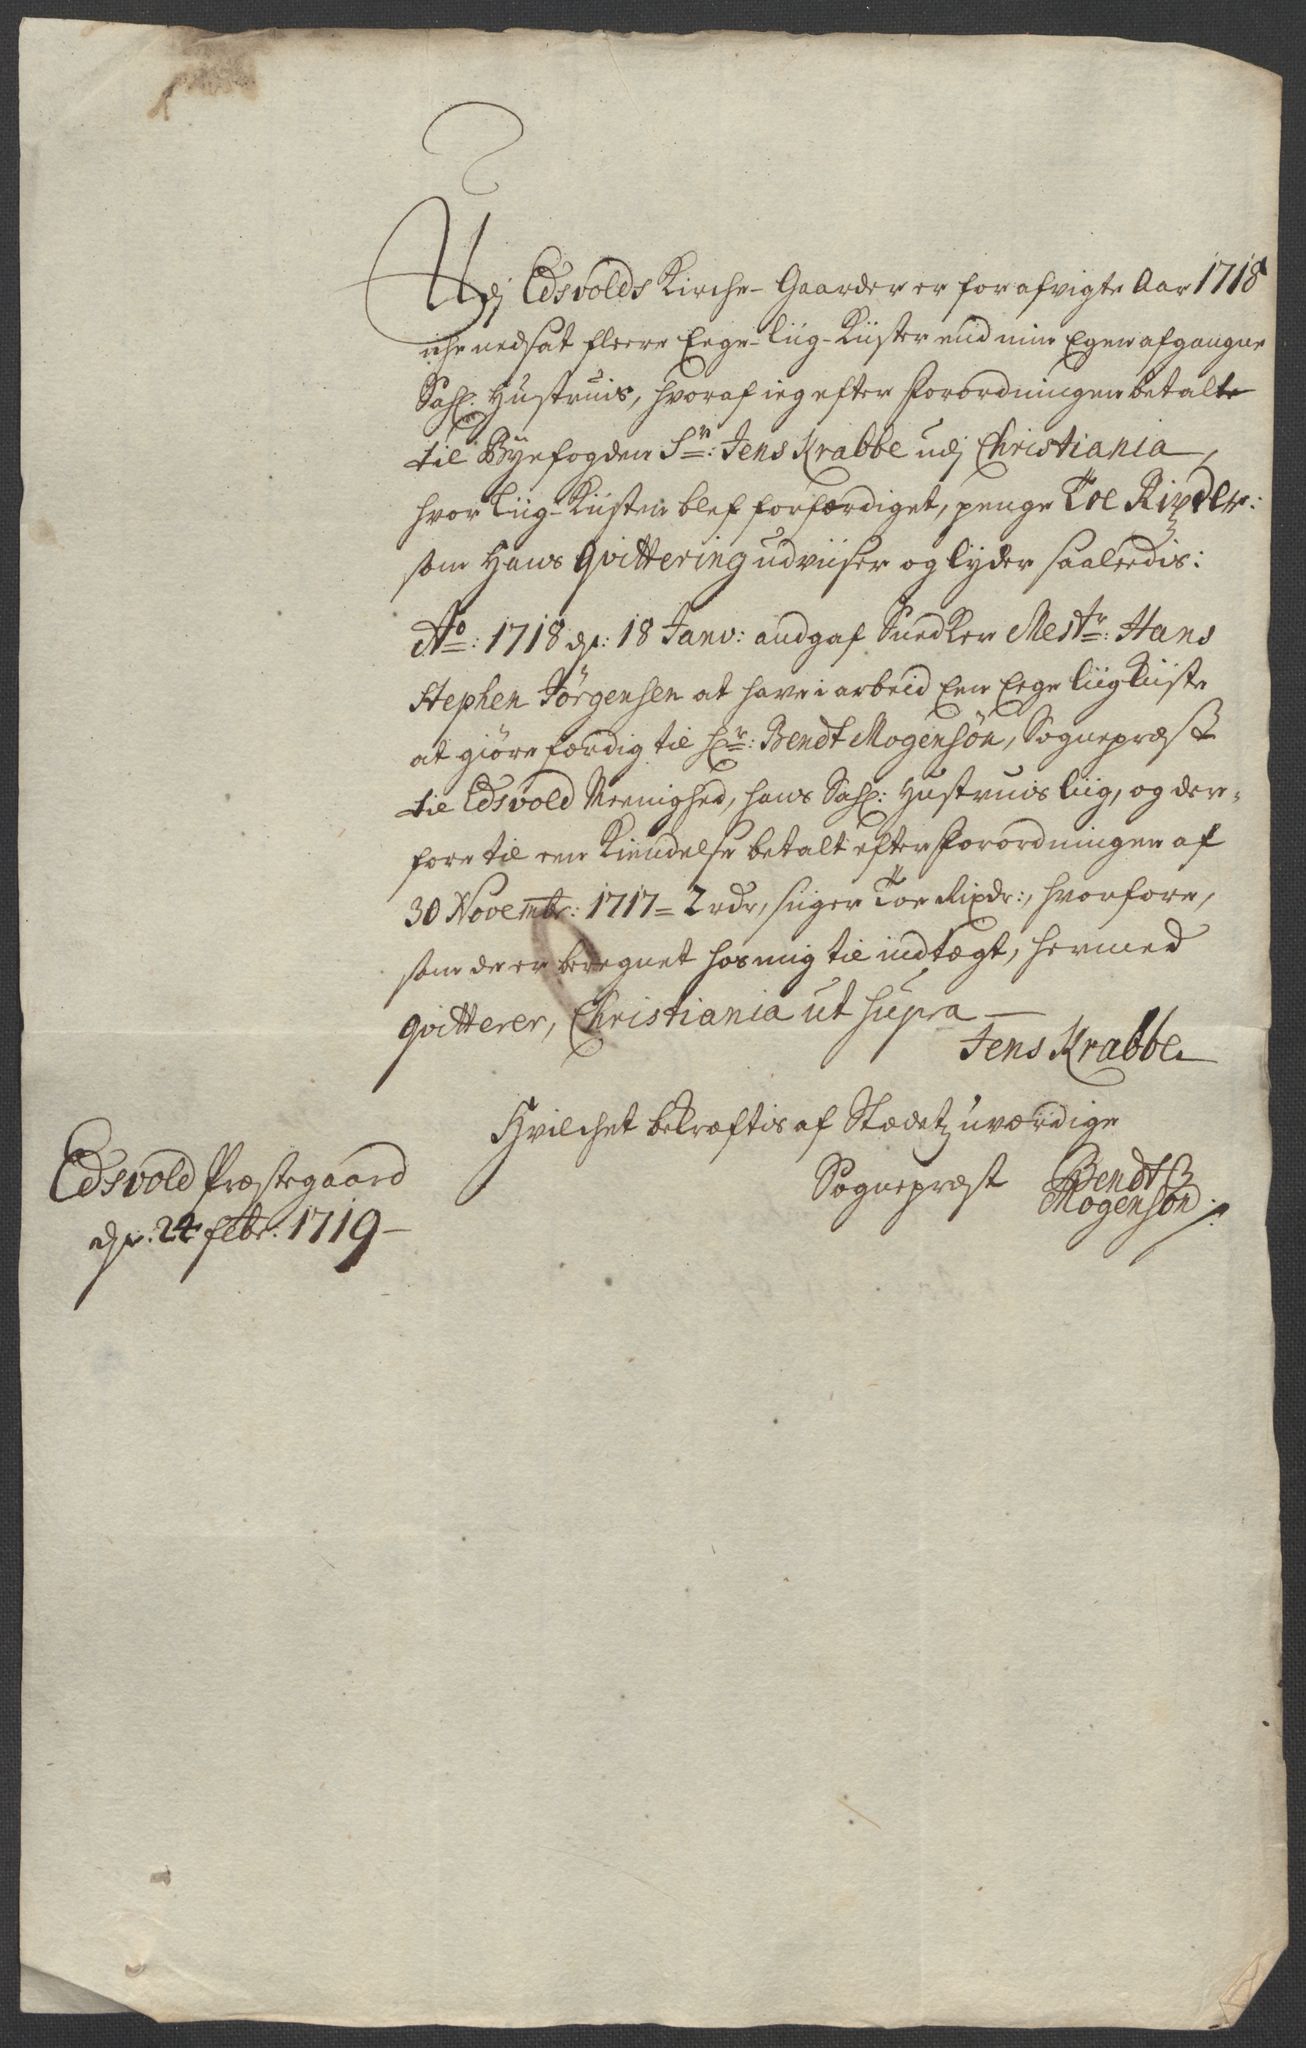 Udj Edsvolds Kirche-Gaarder er for afvigte Aar 1718
iche nedsat fleere Eege-liig-Kiister end min Egen afgangne
Sahl: Hustruis, hvoraf ieg efter Forordningen betalte
til Byefogden Sr: Jens Krabbe udj Christiania,
hvor Liig-Kiisten blef forfærdiget, penge Toe Rixdlr:
som Hans Qvittering udviiser og lyder saaleedis:
Ao: 1718 dn: 18 Janv: andgaf Snedker Mestr: Hans
Stephen Jörgensen at have i arbeid Een Eege liigkiiste
at giöre færdig til Hr: Bendt Mogensön, Sognepræst
til Edsvold Meenighed, hans Sahl: Hustruis liig, og der-
fore til een Kiendelse betalt efter Forordningen af
30 Novembr: 1717 = 2 rdr, siiger Toe Rixdr:, hvorfore,
som de er beregnet hos mig til indtægt, hermed
qvitterer, Christiania ut supra —
Jens Krabbe
Hvilchet bekræftis af Stædetz uværdige
Sognepræst Bendt
Mogensön
Edsvold Præstegaard
dn: 24 febr: 1719 —